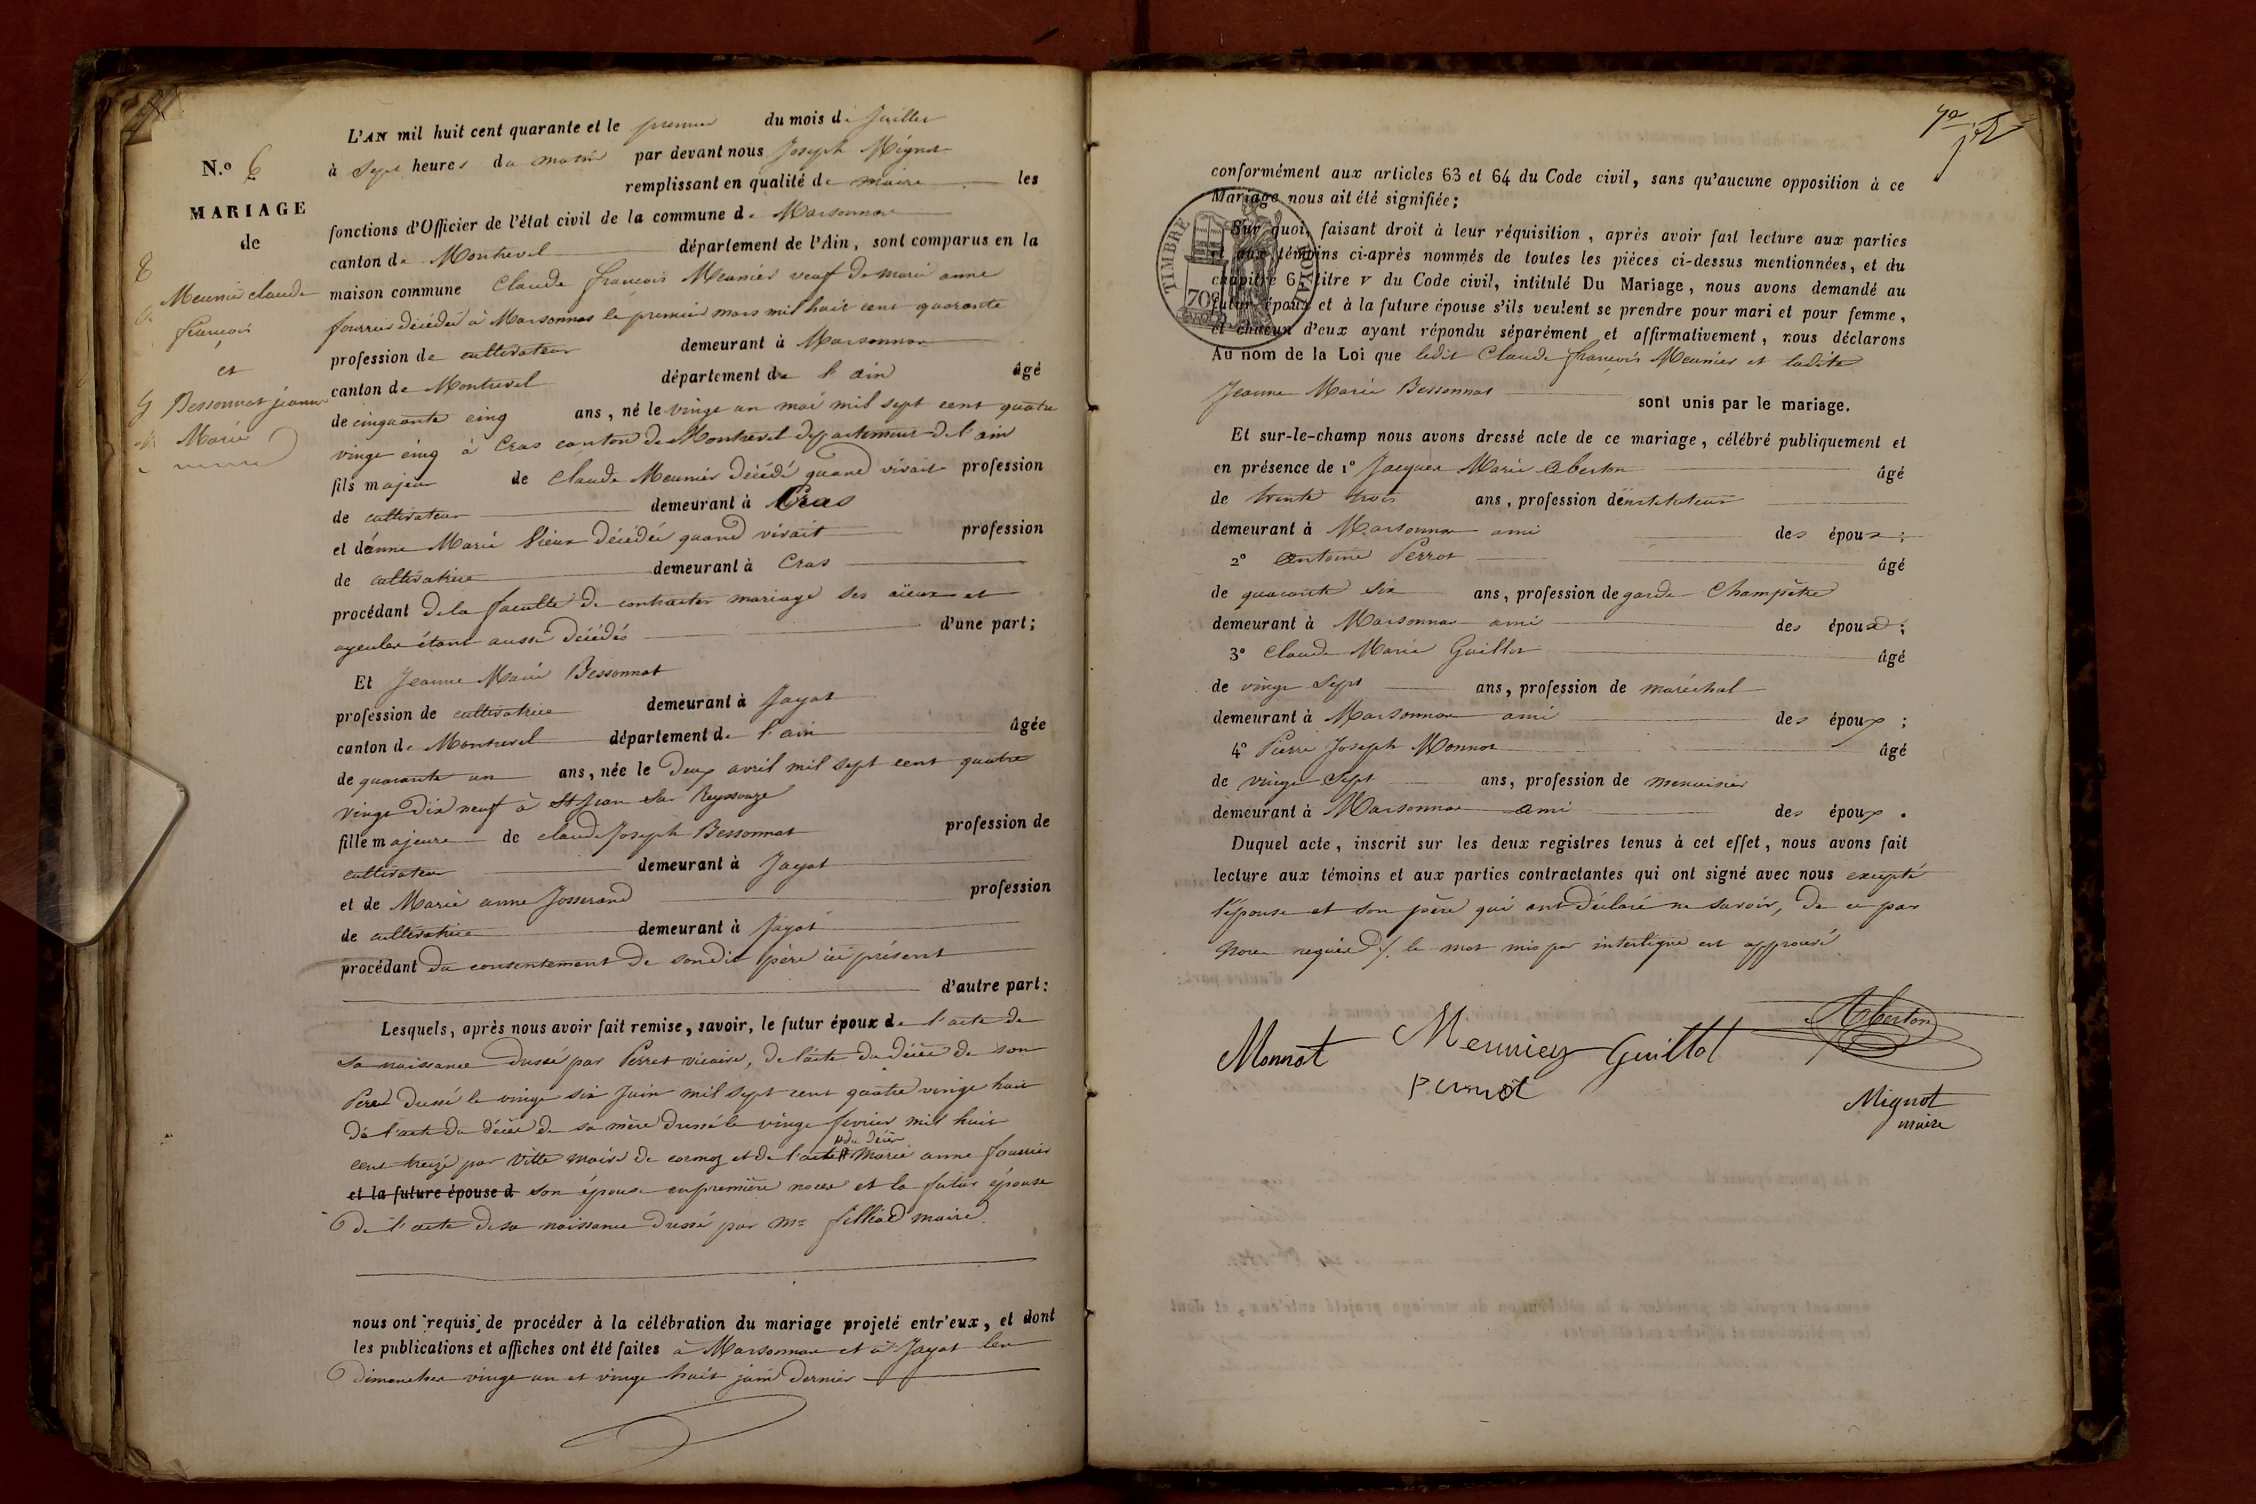 L'AN mil huit cent quarante et le premier du mois de Juillet
N.o 6
à Sept heures du matin par devant nous Joseph Mignot
remplissant en qualité de maire les
MARIAGE
fonctions d'Officier de l'état civil de la commune de Marsonnas
de
canton de Montrevel département de l'Ain, sont comparus en la
Meunier claude
françois
et
Bessonnat jeanne
Marie
maison commune Claude françois Meunier veuf de marie anne
fourrier décédée à Marsonnas le premier mars mil huit cent quarante
profession de cultivateur demeurant à Marsonnas
canton de Montrevel département de l'ain âgé
de cinquante cinq ans, né le vingt un mai mil sept cent quatre
vingt cinq à Cras canton de Montrevel département de l'ain
fils majeur de Claude Meunier décédé quand vivait profession
de cultivateur demeurant à Cras
et d'anne Marie Vieux décédée quand vivait profession
de cultivatrice demeurant à Cras
procédant de la faculté de contracter mariage ses aïeux et
ayeules étant aussi décédés d'une part;
Et Jeanne Marie Bessonnat
profession de cultivatrice demeurant à Jayat
canton de Montrevel département de l'ain âgée
de quarante un ans, née le deux avril mil sept cent quatre
vingt dix neuf à St Jean Sur Reyssouze
fille majeure de claude Joseph Bessonnat profession de
cultivateur demeurant à Jayat
et de Marie anne Josserand profession
de cultivatrice demeurant à Jayat
procédant du consentement de son dit père ici présent
d'autre part:
Lesquels, après nous avoir fait remise, savoir, le futur époux de l'acte de
sa naissance dressé par Perret vicaire, de l'acte du décès de son
Père dressé le vingt six Juin mil sept cent quatre vingt huit
de l'acte du décès de sa mère dressé le vingt fevrier mil huit
#du décès
cent treize par Vitte maire de cormoz et de l'acte # Marie anne fourrier
et la future épouse d son épouse en première noces et la future épouse
de l'acte de sa naissance dressé par Mr filliod maire.
nous ont requis de procéder à la célébration du mariage projeté entr'eux, et dont
les publications et affiches ont été faites à Marsonnas et à Jayat les
dimanches vingt un et vingt huit juin dernier
conformément aux articles 63 et 64 du Code civil, sans qu'aucune opposition à ce
Mariage nous ait été signifiée;
TIMBRE ROYAL
70c
Sur quoi, faisant droit à leur réquisition, après avoir fait lecture aux parties
et aux témoins ci-après nommés de toutes les pièces ci-dessus mentionnées, et du
chapitre 6, titre V du Code civil, intitulé Du Mariage, nous avons demandé au
futur époux et à la future épouse s'ils veulent se prendre pour mari et pour femme,
et chacun d'eux ayant répondu séparément et affirmativement, nous déclarons
Au nom de la Loi que ledit Claude françois Meunier et ladite
Jeanne Marie Bessonnat sont unis par le mariage.
Et sur-le-champ nous avons dressé acte de ce mariage, célébré publiquement et
en présence de 1° Jacques Marie Aberton âgé
de trente trois ans, profession d'instituteur
demeurant à Marsonnas ami des époux;
2° Antoine Perrot âgé
de quarante six ans, profession de garde Champêtre
demeurant à Marsonnas ami des époux;
3° Claude Marie Guillot âgé
de vingt Sept ans, profession de maréchal
demeurant à Marsonnas ami des époux;
4° Pierre Joseph Monnot âgé
de vingt Sept ans, profession de menuisier
demeurant à Marsonnas ami des époux.
Duquel acte, inscrit sur les deux registres tenus à cet effet, nous avons fait
lecture aux témoins et aux parties contractantes qui ont signé avec nous excepté
l'épouse et son père qui ont déclaré ne savoir, de ce par
nous requis /. le mot mis par interligne est approuvé
Monnot Meunier Guillot Aberton
Perrot
Mignot
maire